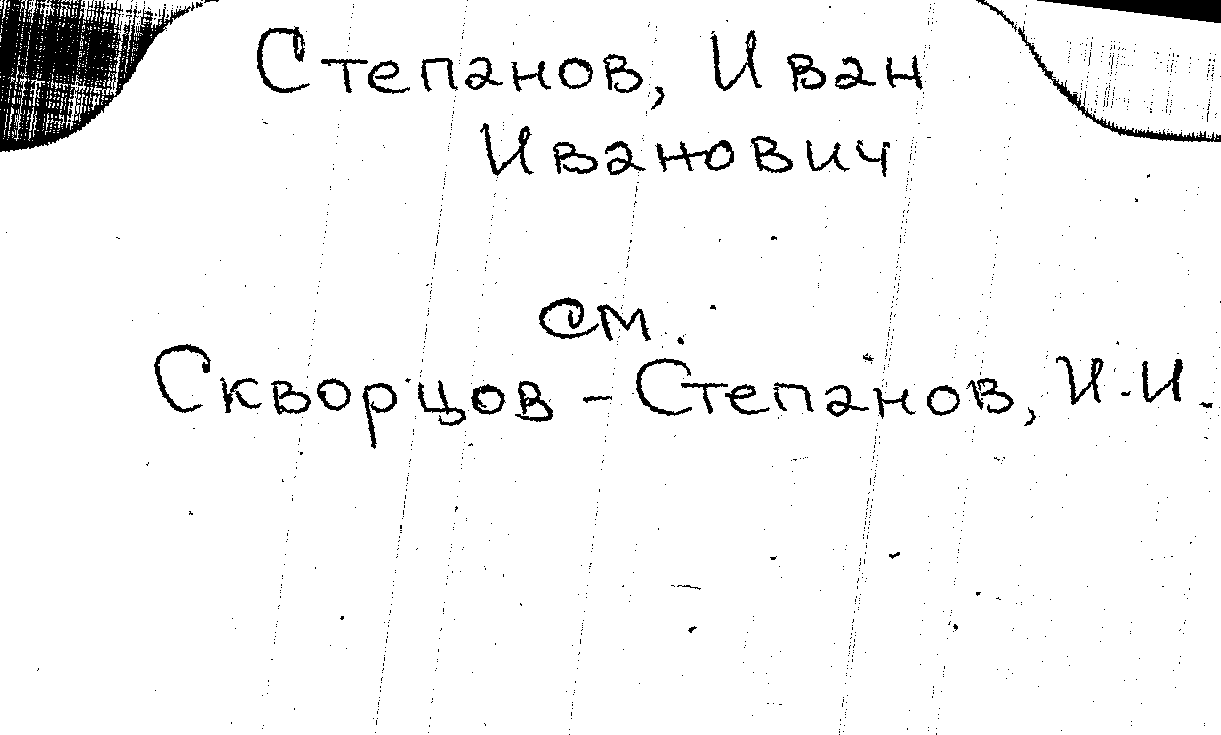 Степанов, Иван
Иванович
см.
Скворцов - Степанов, И.И.